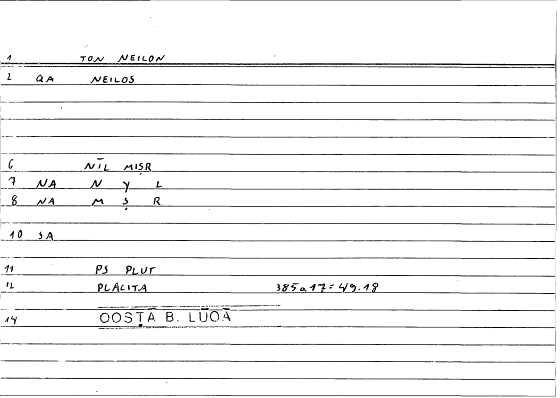 1 TON NEILON
2 QA NEILOS
6 NĪL MIṢR
7 NA N Y L
8 NA M Ṣ R
10 SA
11 PS PLUT
12 PLACITA 385a17=49.18
14 QOSṬĀ B. LŪQĀ